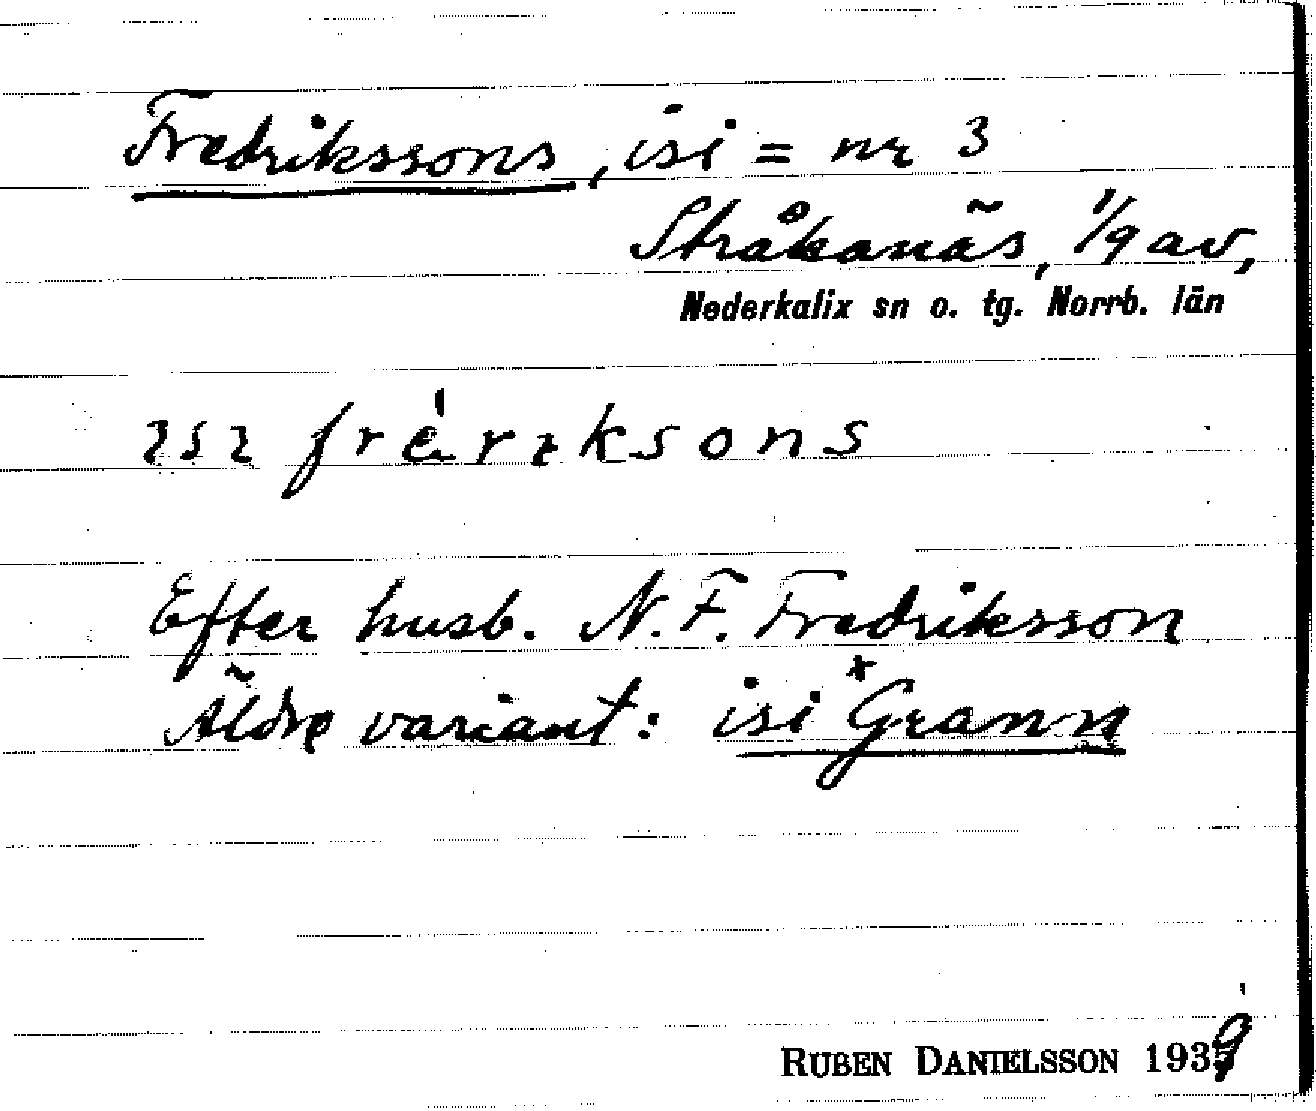 Fredrikssons, isi = nr 3
Stråkanäs, 1/9 av,
Nederkalix sn o. tg. Norrb. län
ısı frérıksons
Efter husb. N. F. Fredriksson
Äldre variant: isi ˣGrann
RUBEN DANIELSSON 1939